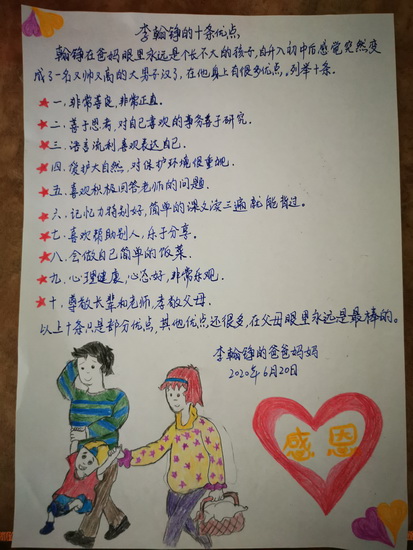 李翰铮的十条优点
翰铮在爸妈眼里永远是个长不大的孩子，自升入初中后感觉突然变
成了一名又帅又高的大男子汉了，在他身上有很多优点，列举十条。
一、非常善良，非常正直.
二、善于思考，对自己喜欢的事务善于研究.
三、语言流利喜欢表达自己.
四、爱护大自然，对保护环境很重视.
五、喜欢积极回答老师的问题.
六、记忆力特别好，简单的课文读三遍就能背过。
七、喜欢帮助别人，乐于分享。
八、会做自己简单的饭菜.
九、心理健康，心态好，非常乐观.
十、尊敬长辈和老师，孝敬父母.
以上十条只是部分优点，其他优点还很多，在父母眼里永远是最棒的。
李翰铮的爸爸妈妈
2020年6月20日
感恩